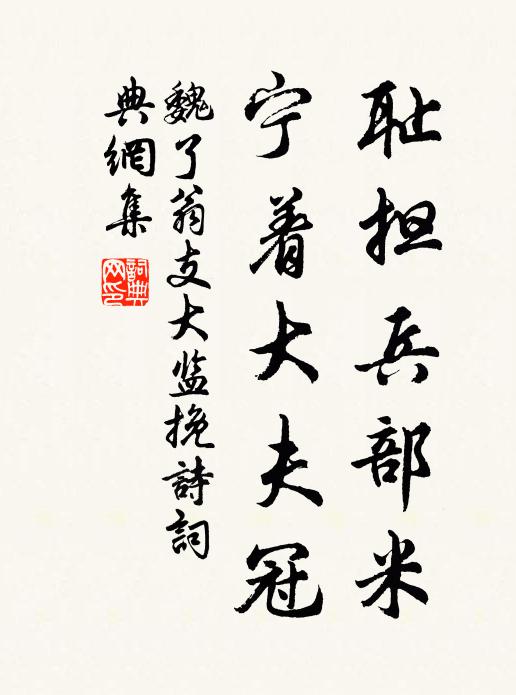 耻担兵部米
宁着大夫冠
魏了翁支大监挽詩詞
典網集
詞典
网印